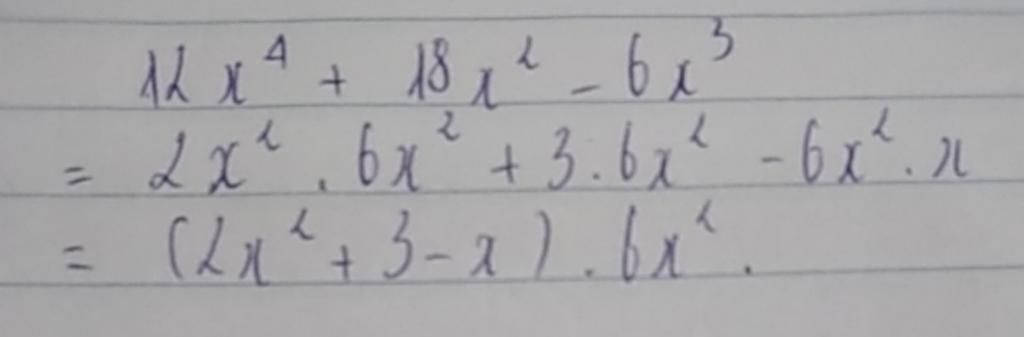 12x⁴ + 18x² - 6x³
= 2x² . 6x² + 3 . 6x² - 6x² . x
= (2x² + 3 - x) . 6x².